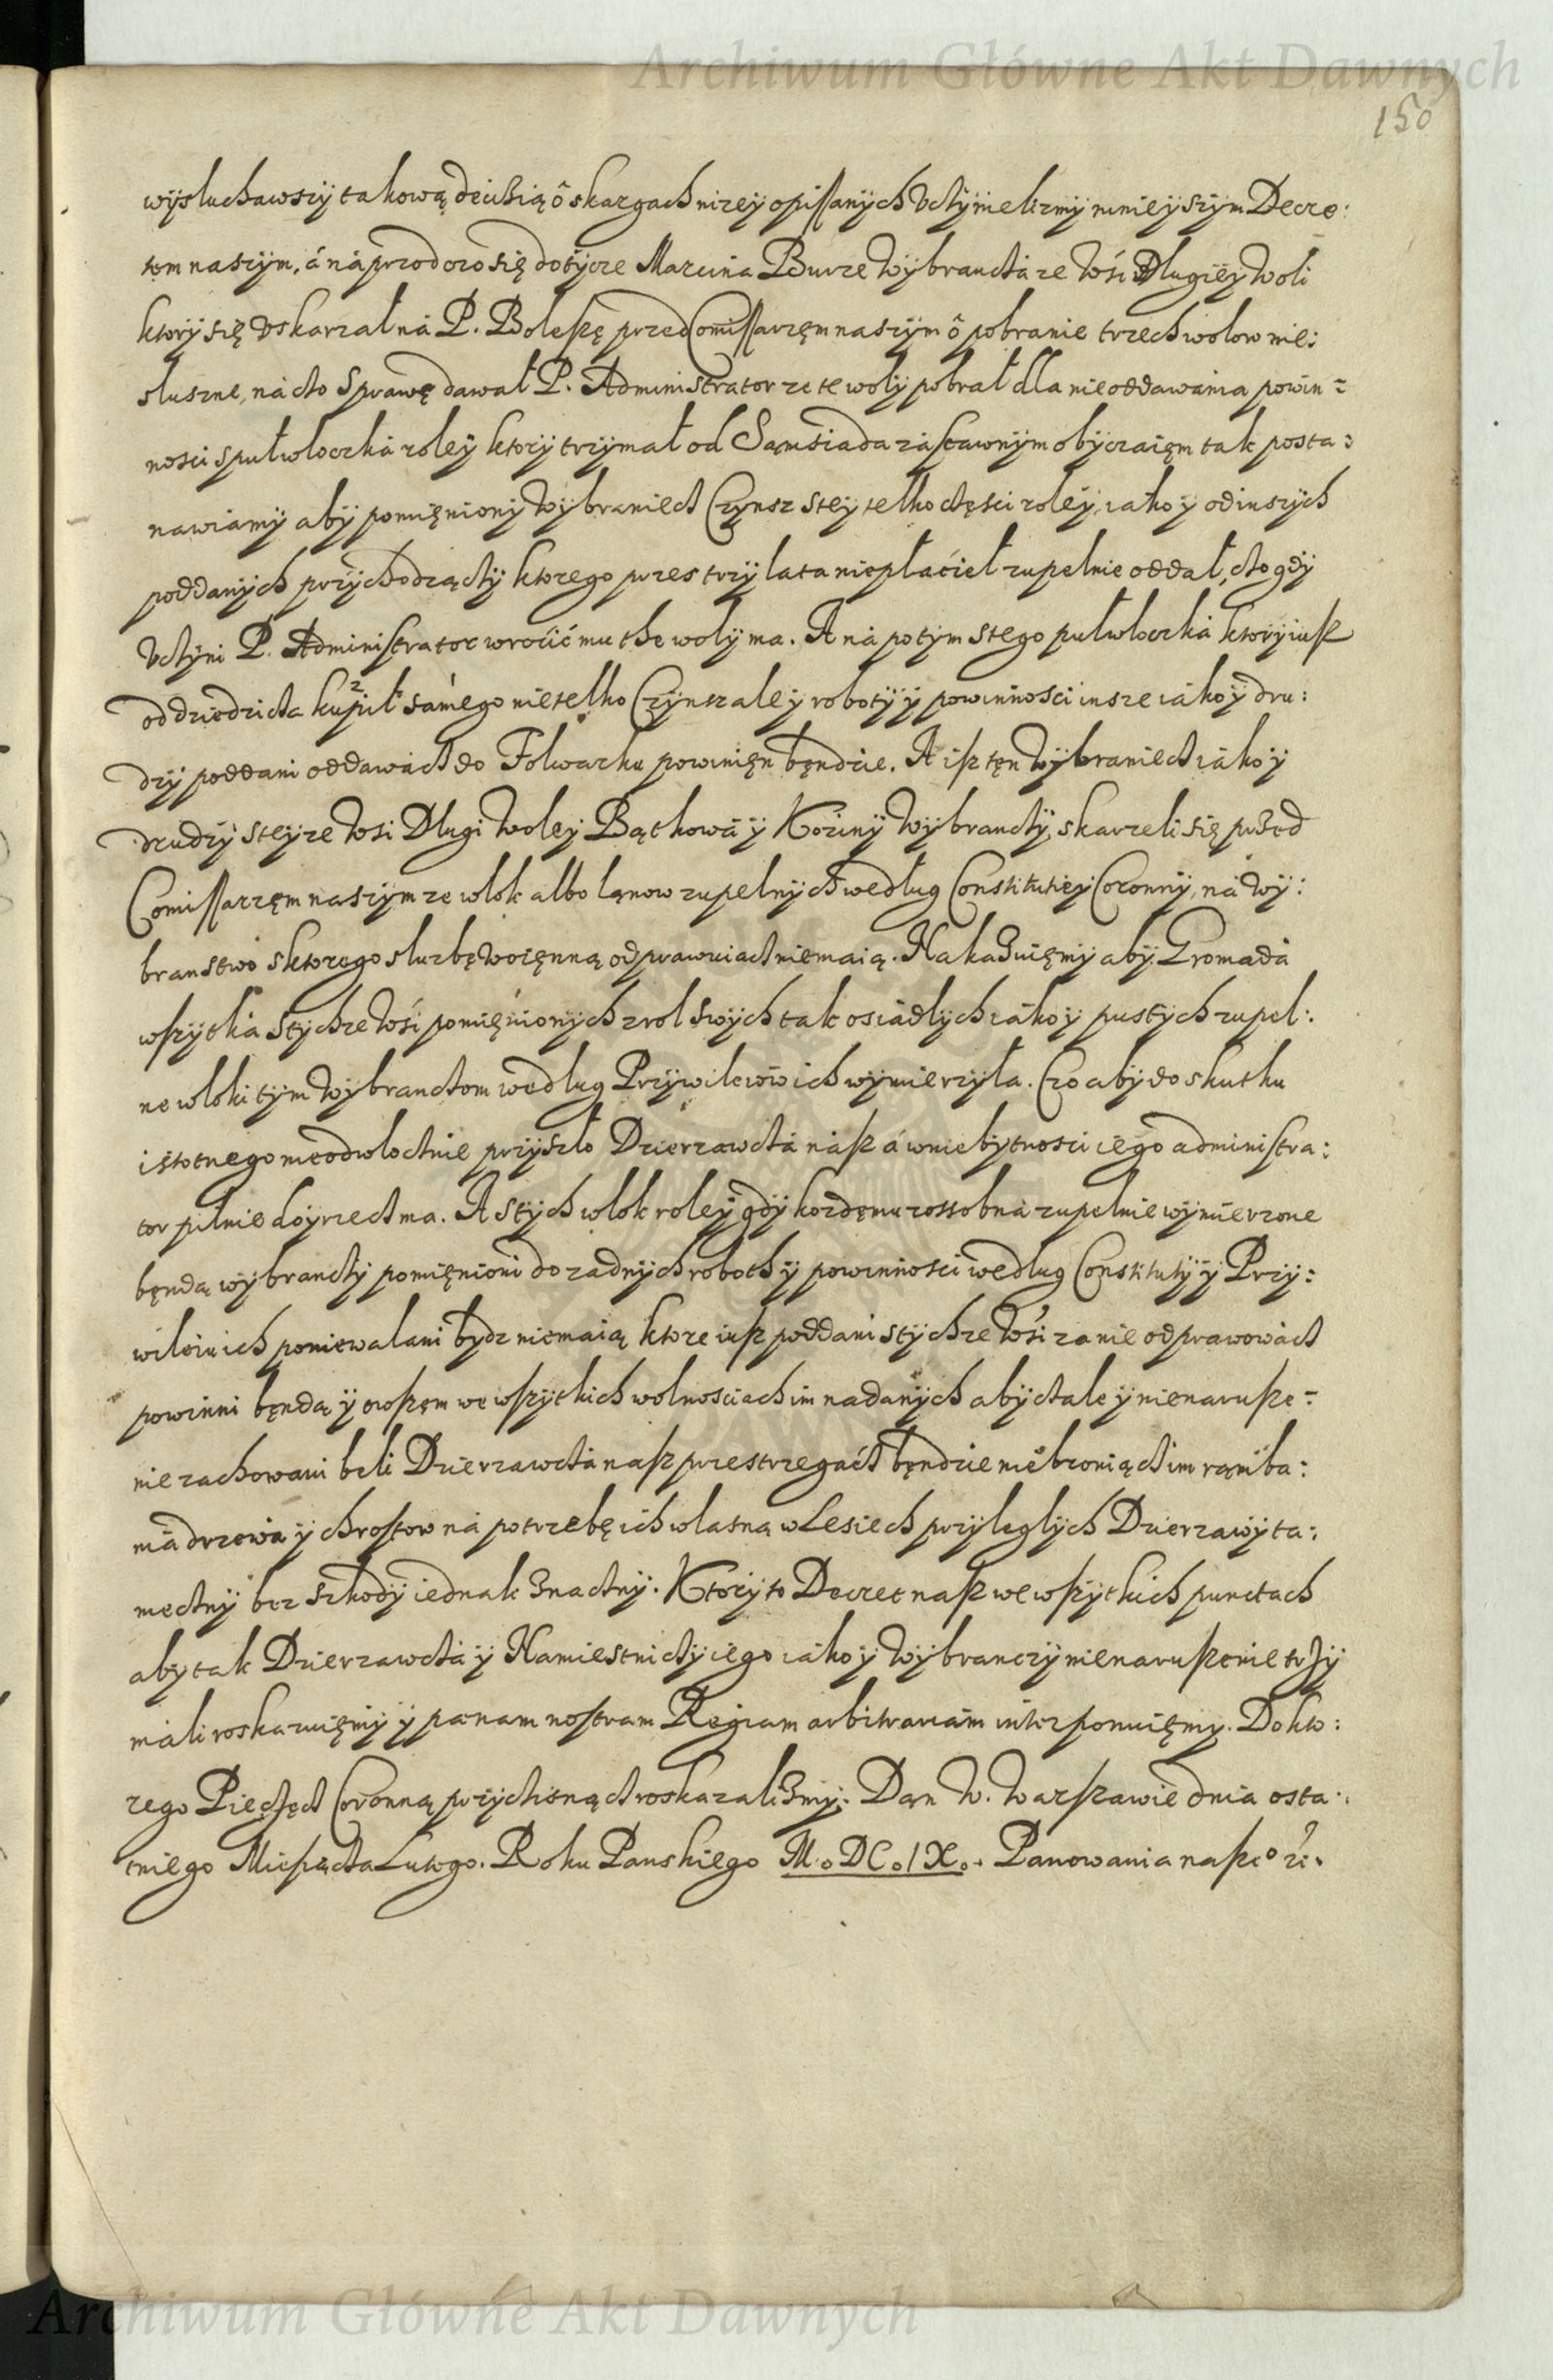 Archiwum Główne Akt Dawnych
150
wysłuchawszy takową deciszią o skargach nizey opissanych Vczynielismy ninieyszym Decre:
tem naszym, á náprzod czo się dotycze Marcina Burze Wybranczá ze Wśi Długiey Woli
ktory się Vskarzał ná P. Boleszę przed Comissarzęm naszym o pobranie trzech wołow nie:
słuszne, ná czo sprawę dawał P. Administrator ze te woły pobrał dla nieoddawania powin=
nosci s pułwłoczká roley ktory trzymał od Sąmsiada zástawnym obyczaięm tak posta:
nawiamy aby pomięniony Wybraniecz Czynsz s tey telko częsci roley, iáko y od inszych
poddanych przychodzączy ktorego przes trzy lata niepłácieł zupełnie oddał, czo gdy
Vczyni P. Administrator wrocić mu the woły ma. A ná potym s tego pułwłoczká ktory iusz
od dziedzicza kupił samego nie telko Czynsz ale y roboty y powinnosci insze iáko y dru:
dzy poddani oddawácz do Folwarku powinięn będzie. A isz tęn Wybraniecz iáko y
drudzy s teyze Wsi Długi Woley Bątkowá y Koziny Wybranczy, skarzeli się przed
Comissarzęm naszym ze włok albo łąnow zupełnych według Constitutiey Coronny, ná Wy:
branstwo s ktorego słuzbę Woięnną odprawuiacz niemaią. Nakazuięmy aby Gromadá
wszytká s tychze Wśi pomięnionych z rol swych tak osiadłych iáko y pustych zupeł:
ne włoki tym Wybranczom według Przywilewow ich wymierzyła. Czo aby do skutku
istotnego nieodwłocznie przyszło Dzierzawczá nász á w niebytnosci iego administra:
tor pilnie doyrzecz ma. A s tych włok roley gdy kozdęmu zossobná zupełnie wymierzone
będą wybranczy pomięnioni do zadnych roboth y powinnosci według Constituty y Przy:
wileiu ich poniewalani bydz niemaią ktore iusz poddani s tychze Wśi za nie odprawowácz
powinni będą y owszęm we wszytkich wolnosciach im nadanych aby czale y nienarusze=
nie zachowani beli Dzierzawczá nasz przestrzegácz będzie niebroniącz im rąmba:
niá drzewá y chrostow ná potrzebę ich własną w Lesiech przyległych Dzierzawy ta:
meczny bez szkody iednak znaczny. Ktory to Decret nasz we wszytkich punctach
aby tak Dzierzawczá y Namiestniczy iego iáko y Wybranczy nienaruszenie trzy
máli roskazuięmy y pœnam nostram Regiam arbitrariam interponuięmy. Do kto:
rego Pieczęcz Coronną przycisnącz roskazalizmy. Dan W. Warszawie dnia osta:
tniego Miesiącza Lutego. Roku Panskiego M.DC.IX. Panowania nasze° ??
Archiwum Główne Akt Dawnych